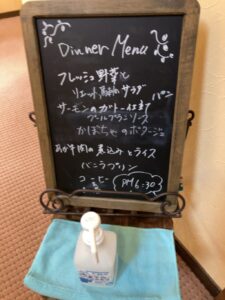 Dinner Menu
フレッシュ野菜と
サラダ
パン
サーモンのガトー仕立
ブールブランソース
かぼちゃのポタージュ
牛肉の煮込みとライス
バニラプリン
コーヒー
PM6:30